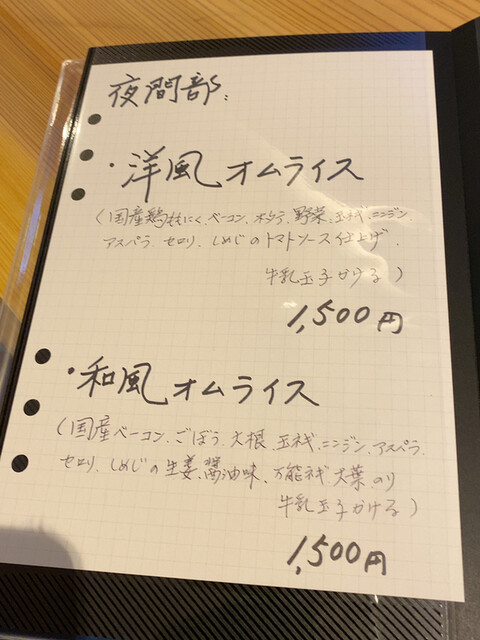 夜間部:
・洋風オムライス
(国産鶏もにく、ベーコン、ホタテ、野菜、玉ネギ、ニンジン、
アスパラ、セロリ、しめじのトマトソース仕上げ、
牛乳玉子かける)
1,500円
・和風オムライス
(国産ベーコン、ごぼう、大根、玉ネギ、ニンジン、アスパラ、
セロリ、しめじの生姜、醤油味、万能ネギ、大葉、のり
牛乳玉子かける)
1,500円